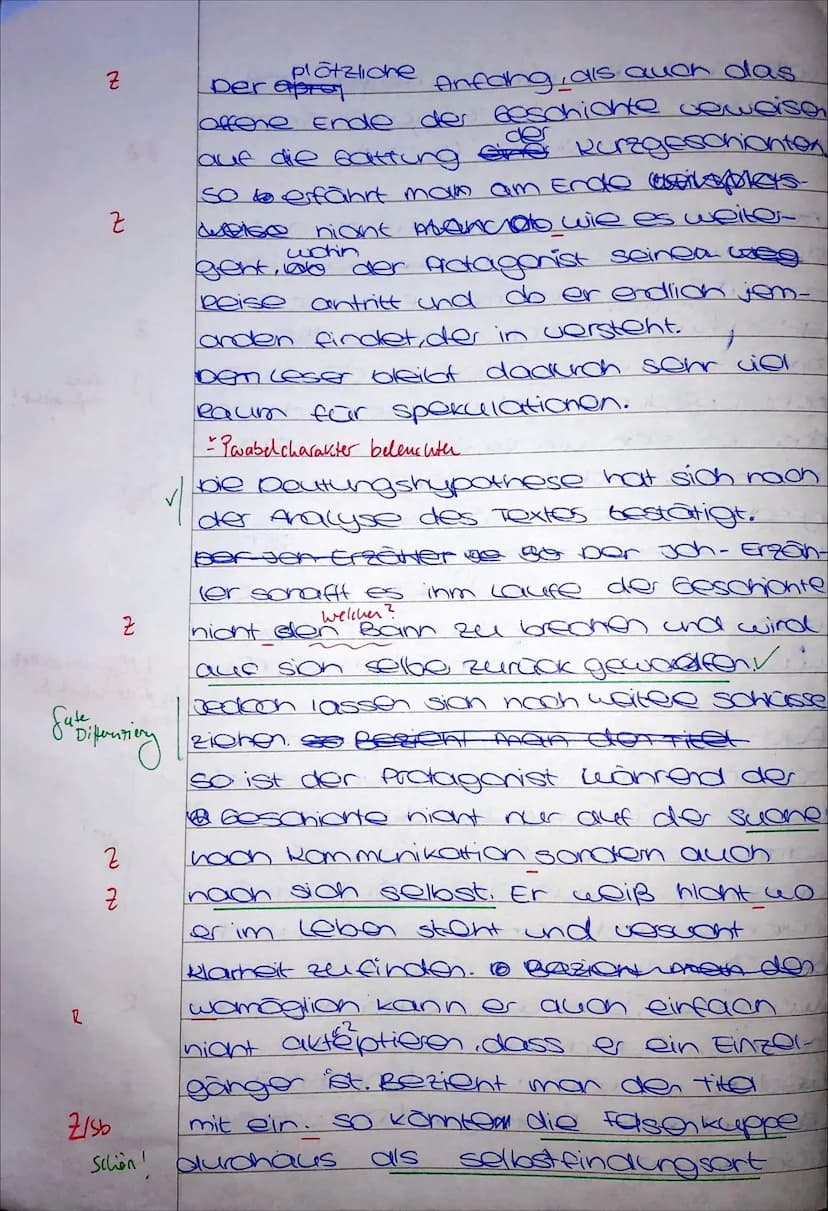 plötzliche
Z Der Anfang, als auch das
offene Ende der Geschichte verweisen
der
auf die Gattung einer Kurzgeschichten
so erfährt man am Ende
Z nicht wie es weiter-
wohin
geht, der Protagonist seinen weg
Reise antritt und ob er endlich jem-
anden findet, der in versteht.
Dem Leser bleibt dadurch sehr viel
Raum für Spekulationen.
- Parabelcharakter beleuchten
Die Deutungshypothese hat sich nach
der Analyse des Textes bestätigt.
Der Ich-Erzähler so Der Ich-Erzäh-
ler schafft es ihm Laufe der Geschichte
welcher?
Z nicht den Bann zu brechen und wird
auf sich selbe zurück geworfen. ✓
Jedoch lassen sich noch weitere Schlüsse
Gute Differenzierung
ziehen. so Bezieht man den Titel
so ist der Protagonist während der
Geschichte nicht nur auf der Suche
Z nach Kommunikation sondern auch
Z nach sich selbst. Er weiß nicht wo
er im Leben steht und versucht
Klarheit zu finden. Bezieht man den
R womöglich kann er auch einfach
nicht aktzeptieren, dass er ein Einzel-
gänger ist. Bezieht man den Titel
Z/Sb mit ein. so könnten die Felsenkuppe
Schön! durchaus als Selbstfindungsort